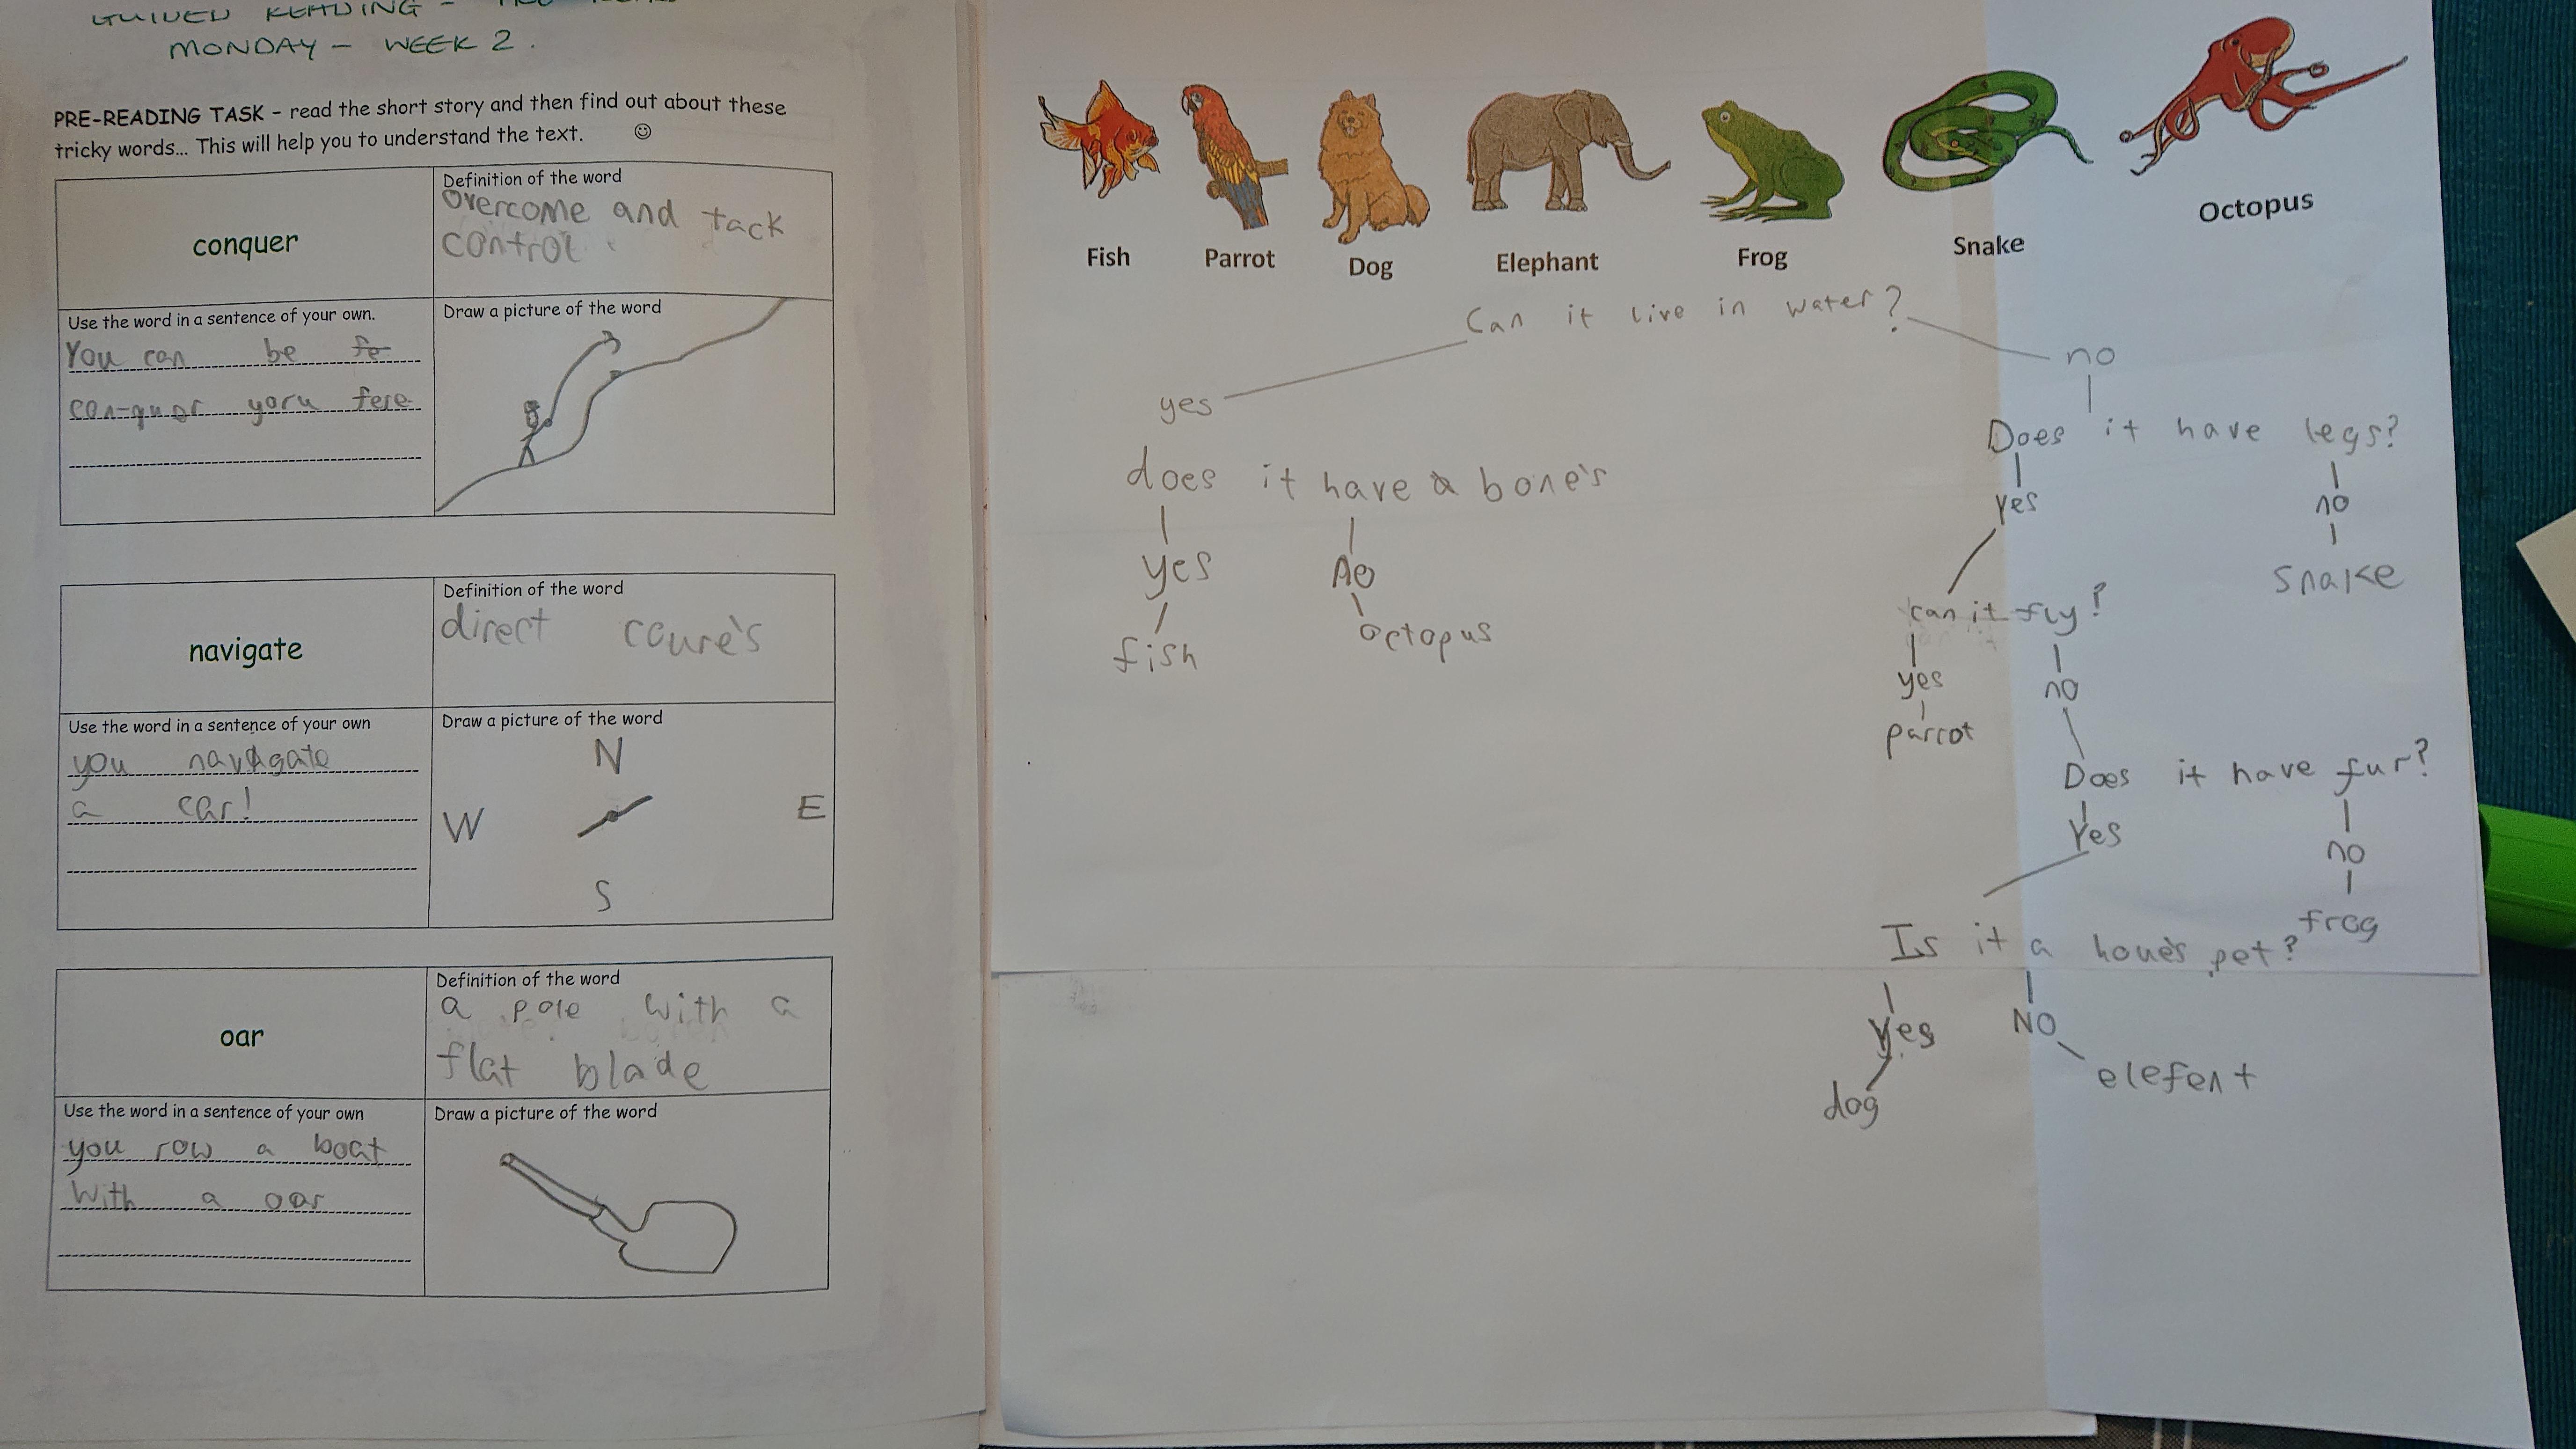 GUIDED READING -
MONDAY - WEEK 2.
PRE-READING TASK – read the short story and then find out about these
tricky words... This will help you to understand the text. ☺
conquer
Definition of the word
overcome and tack
control.
Use the word in a sentence of your own.
You can be fe
con-quer yoru fere
Draw a picture of the word
navigate
Definition of the word
direct coure's
Use the word in a sentence of your own
you navagate
a car!
Draw a picture of the word
N
W E
S
oar
Definition of the word
a pole with a
flat blade
Use the word in a sentence of your own
you row a boat
with a oar
Draw a picture of the word
Fish Parrot Dog Elephant Frog Snake Octopus
Can it live in water?
yes
no
does it have a bone's
yes no
fish octopus
Does it have legs?
yes no
snake
can it fly?
yes no
parrot
Does it have fur?
Yes no
frog
Is it a houe's pet?
Yes NO
dog elefent